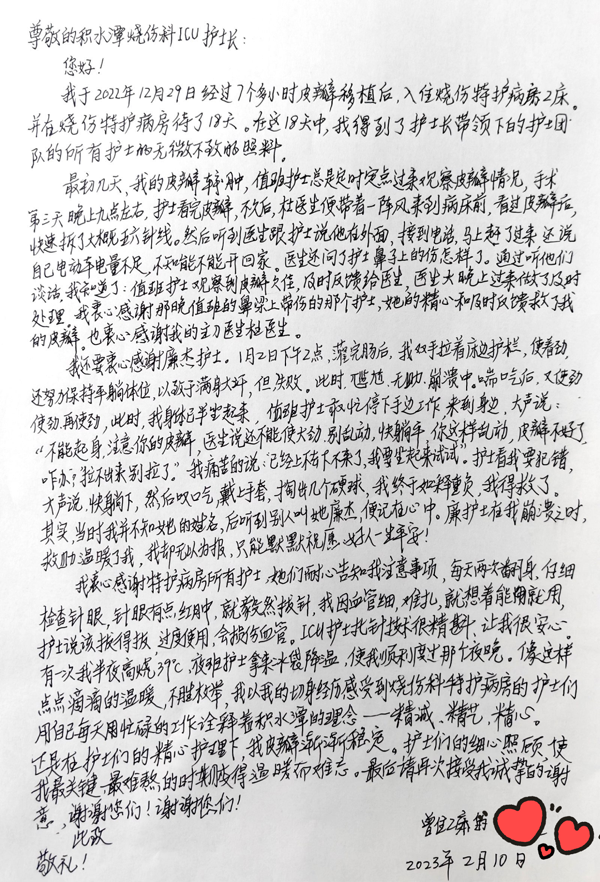 尊敬的积水潭烧伤科ICU护士长:
您好!
我于2022年12月29日经过7个多小时皮瓣移植后,入住烧伤特护病房2床。
并在烧伤特护病房待了18天。在这18天中,我得到了护士长带领下的护士团
队的所有护士的无微不致的照料。
最初几天,我的皮瓣较肿,值班护士总是定时定点过来观察皮瓣情况,手术
第三天晚上九点左右,护士看完皮瓣,不久后,杜医生便带着一阵风来到病床前,看过皮瓣后,
快速拆了大概五六针线。然后听到医生跟护士说他在外面,接到电话,马上赶了过来,还说
自己电动车电量不足,不知能不能开回家。医生还问了护士鼻子上的伤怎样了。通过听他们
谈话,我知道了:值班护士观察到皮瓣欠佳,及时反馈给医生,医生大晚上过来做了及时
处理。我衷心感谢那晚值班的鼻梁上带伤的那个护士,她的精心和及时反馈救了我
的皮瓣。也衷心感谢我的主刀医生杜医生。
我还要衷心感谢廉杰护士。1月2日下午2点,灌完肠后,我双手拉着床边护栏,使着劲,
还努力保持平躺体位,以致于满身大汗,但失败。此时,尴尬、无助、崩溃中。喘口气后,又使劲
使劲再使劲,此时,我身体已半坐起来,值班护士急忙停下手边工作,来到身边,大声说:
“不能起身,注意你的皮瓣,医生说还不能使大劲,别乱动,快躺平,你这样乱动,皮瓣不好了,
咋办?拉不出来别拉了。”我痛苦的说:已经上不去下不来了,我要坐起来试试”。护士看我要犯错,
大声说,快躺下,然后叹口气,戴上手套,掏出几个硬球,我终于如释重负,我得救了。
其实,当时我并不知她的姓名,后听到别人叫她廉杰,便记在心中。廉护士在我崩溃之时,
救助温暖了我,我却无以为报,只能默默祝愿她好人一生平安!
我衷心感谢特护病房所有护士,她们耐心告知我注意事项,每天两次翻身,仔细
检查针眼,针眼有点红肿,就毅然拔针,我因血管细,难扎,就想着能用就用,
护士说该拔得拔,过度使用,会损伤血管。ICU护士扎针技术很精湛,让我很安心。
有一次我半夜高烧39℃,夜班护士拿来冰袋降温,使我顺利度过那个夜晚。像这样
点点滴滴的温暖,不胜枚举,我以我的切身经历感受到烧伤科特护病房的护士们
用自己每天用忙碌的工作诠释着积水潭的理念——精诚、精艺、精心。
正是在护士们的精心护理下,我皮瓣渐渐稳定。护士们的细心照顾,使
我最关键最难熬的时期变得温暖而难忘。最后请再次接受我诚挚的谢
意,谢谢您们!谢谢您们!
此致
敬礼!
曾住2床的
2023年2月10日